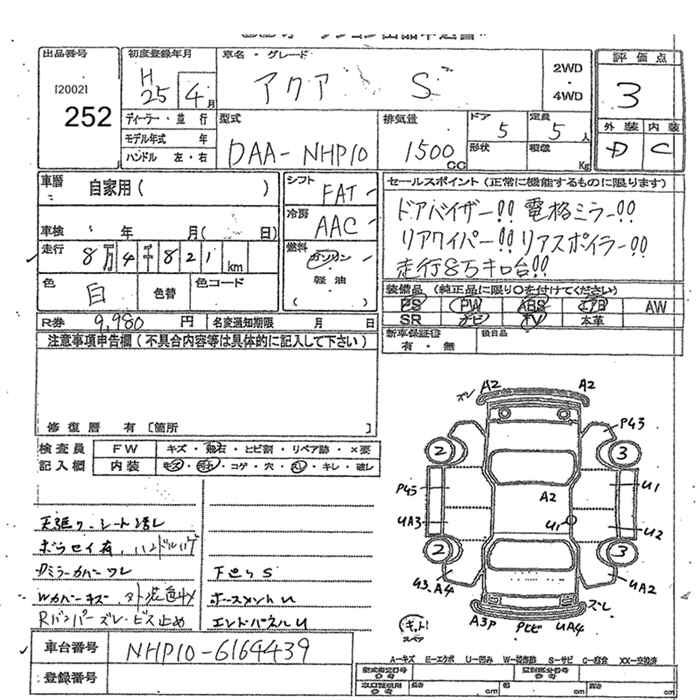 出品番号
[2002]
252
初度登録年月
H25 4月
車名・グレード
アクア S
2WD
・
4WD
評価点
3
外装 内装
D C
ディーラー・並行
モデル年式 年
ハンドル 左・右
型式
DAA-NHP10
排気量
1500cc
ドア
5
定員
5人
形状
積載
Kg
車暦
自家用(        )
車検 年 月( 日)
走行
8万4千821km
色
白
色替
色コード
シフト
FAT
冷房
AAC
燃料
ガソリン
軽油
(        )
セールスポイント(正常に機能するものに限ります)
ドアバイザー!! 電格ミラー!!
リアワイパー!! リアスポイラー!!
走行8万キロ台!!
装備品(純正品に限り○を付けてください)
PS PW ABS エアB AW
SR ナビ TV 本革
R券 9,980円
名変通知期限 月 日
新車保証書
有・無
後日品
注意事項申告欄(不具合内容等は具体的に記入して下さい)
修復歴 有[箇所 ]
検査員
記入欄
FW
キズ・飛石・ヒビ割・リペア跡・×要
内装
キズ・汚れ・コゲ・穴・スレ・キレ・破レ
天張り・シート汚レ
Wカバーキズ
Rバンパーズレ・ビス止め
下廻りS
ホースメントU
エンドパネルU
ズレ A2 A2
P43
2 3
U1
P45
A2
UA3
U1
U2
2 3
U3.A4
UA2
ズレ
A3P Pヒビ UA4
スペア
A=キズ E=エクボ U=凹み W=補修跡 S=サビ C=腐食 XX=交換済
車台番号
NHP10-6164439
登録番号
長さ cm 幅 cm 高さ cm